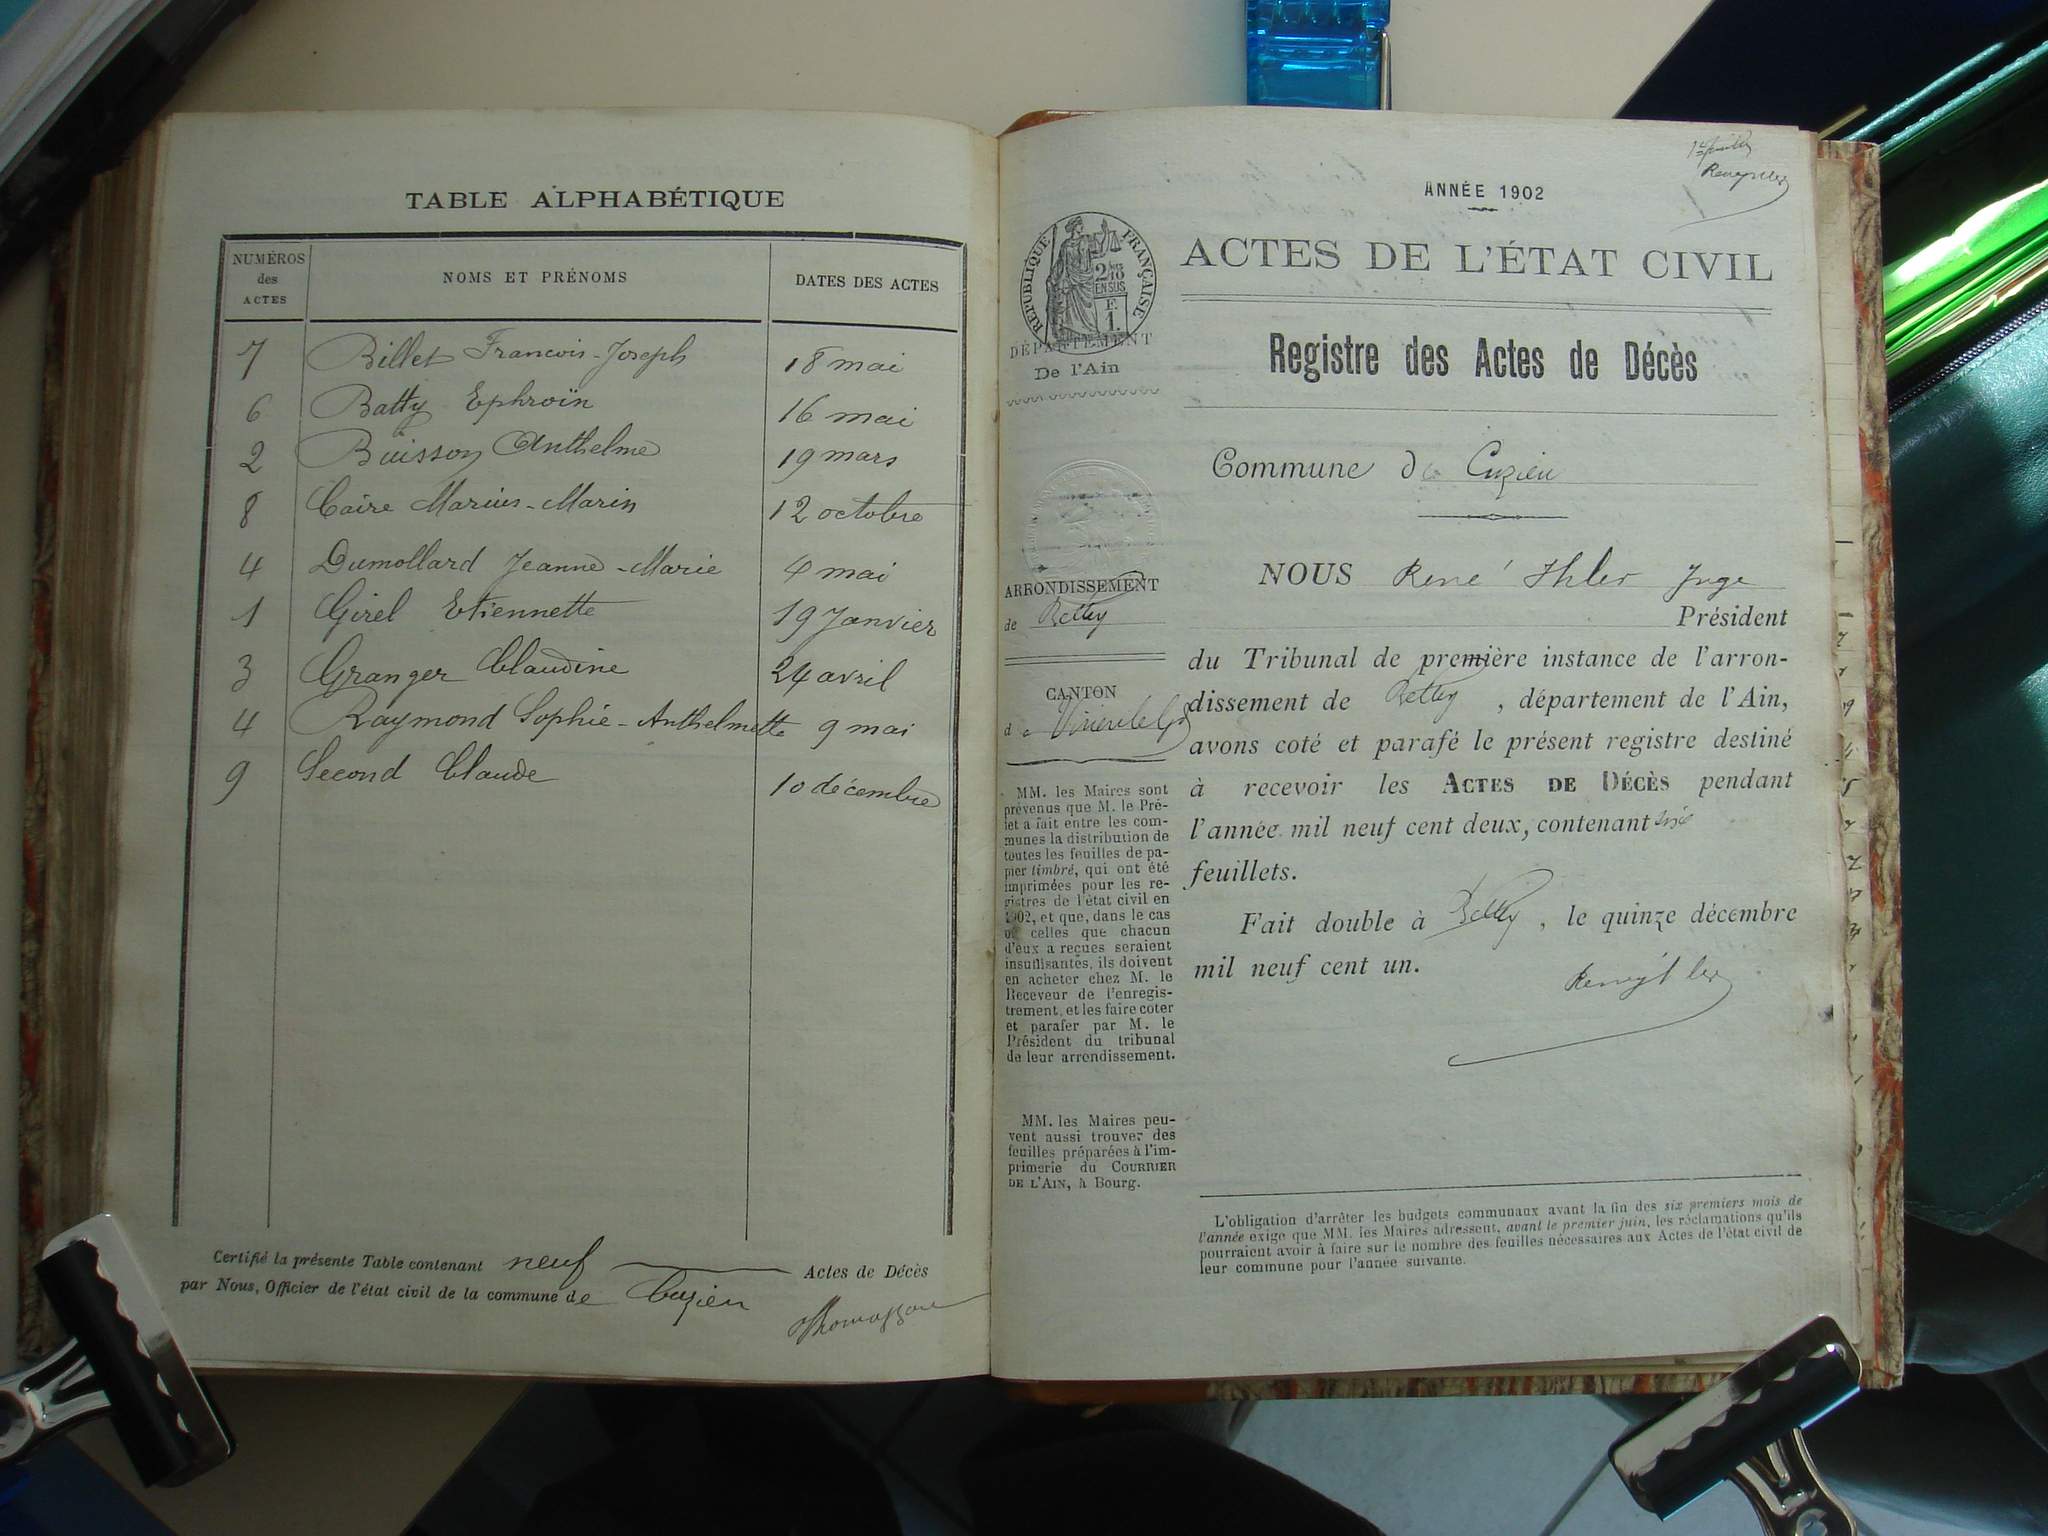 TABLE ALPHABÉTIQUE
NUMÉROS des ACTES
NOMS ET PRÉNOMS
DATES DES ACTES
7 Billet Francois-Joseph 18 mai
6 Batty Ephroïn 16 mai
2 Buisson Anthelme 19 mars
8 Caire Marius-Marin 12 octobre
4 Dumollard Jeanne-Marie 4 mai
1 Girel Etiennette 19 Janvier
3 Granger Claudine 24 avril
4 Raymond Sophie-Anthelmette 9 mai
9 Second Claude 10 décembre
Certifié la présente Table contenant neuf Actes de Décès
par Nous, Officier de l'état civil de la commune de Cuzieu
ANNÉE 1902
ACTES DE L'ÉTAT CIVIL
RÉPUBLIQUE FRANÇAISE
2/10 EN SUS
F.
1.
DÉPARTEMENT
De l'Ain
Registre des Actes de Décès
Commune de Cuzieu
ARRONDISSEMENT
de Belley
CANTON
de Virieu le Gd
MM. les Maires sont
prévenus que M. le Pré-
fet a fait entre les com-
munes la distribution de
toutes les feuilles de pa-
pier timbré, qui ont été
imprimées pour les re-
gistres de l'état civil en
1902, et que, dans le cas
où celles que chacun
d'eux a reçues seraient
insuffisantes, ils doivent
en acheter chez M. le
Receveur de l'enregis-
trement, et les faire coter
et parafer par M. le
Président du tribunal
de leur arrondissement.
MM. les Maires peu-
vent aussi trouver des
feuilles préparées à l'im-
primerie du COURRIER
DE L'AIN, à Bourg.
NOUS René Ihler Juge
Président
du Tribunal de première instance de l'arron-
dissement de Belley, département de l'Ain,
avons coté et parafé le présent registre destiné
à recevoir les ACTES DE DÉCÈS pendant
l'année mil neuf cent deux, contenant six
feuillets.
Fait double à Belley, le quinze décembre
mil neuf cent un.
L'obligation d'arrêter les budgets communaux avant la fin des six premiers mois de
l'année exige que MM. les Maires adressent, avant le premier juin, les réclamations qu'ils
pourraient avoir à faire sur le nombre des feuilles nécessaires aux Actes de l'état civil de
leur commune pour l'année suivante.